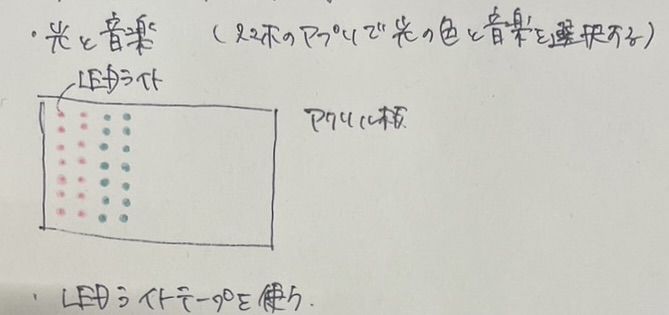 ・光と音楽 (スマホのアプリで光の色と音楽を選択する)
LEDライト
アクリル板
・LEDライトテープを使う.